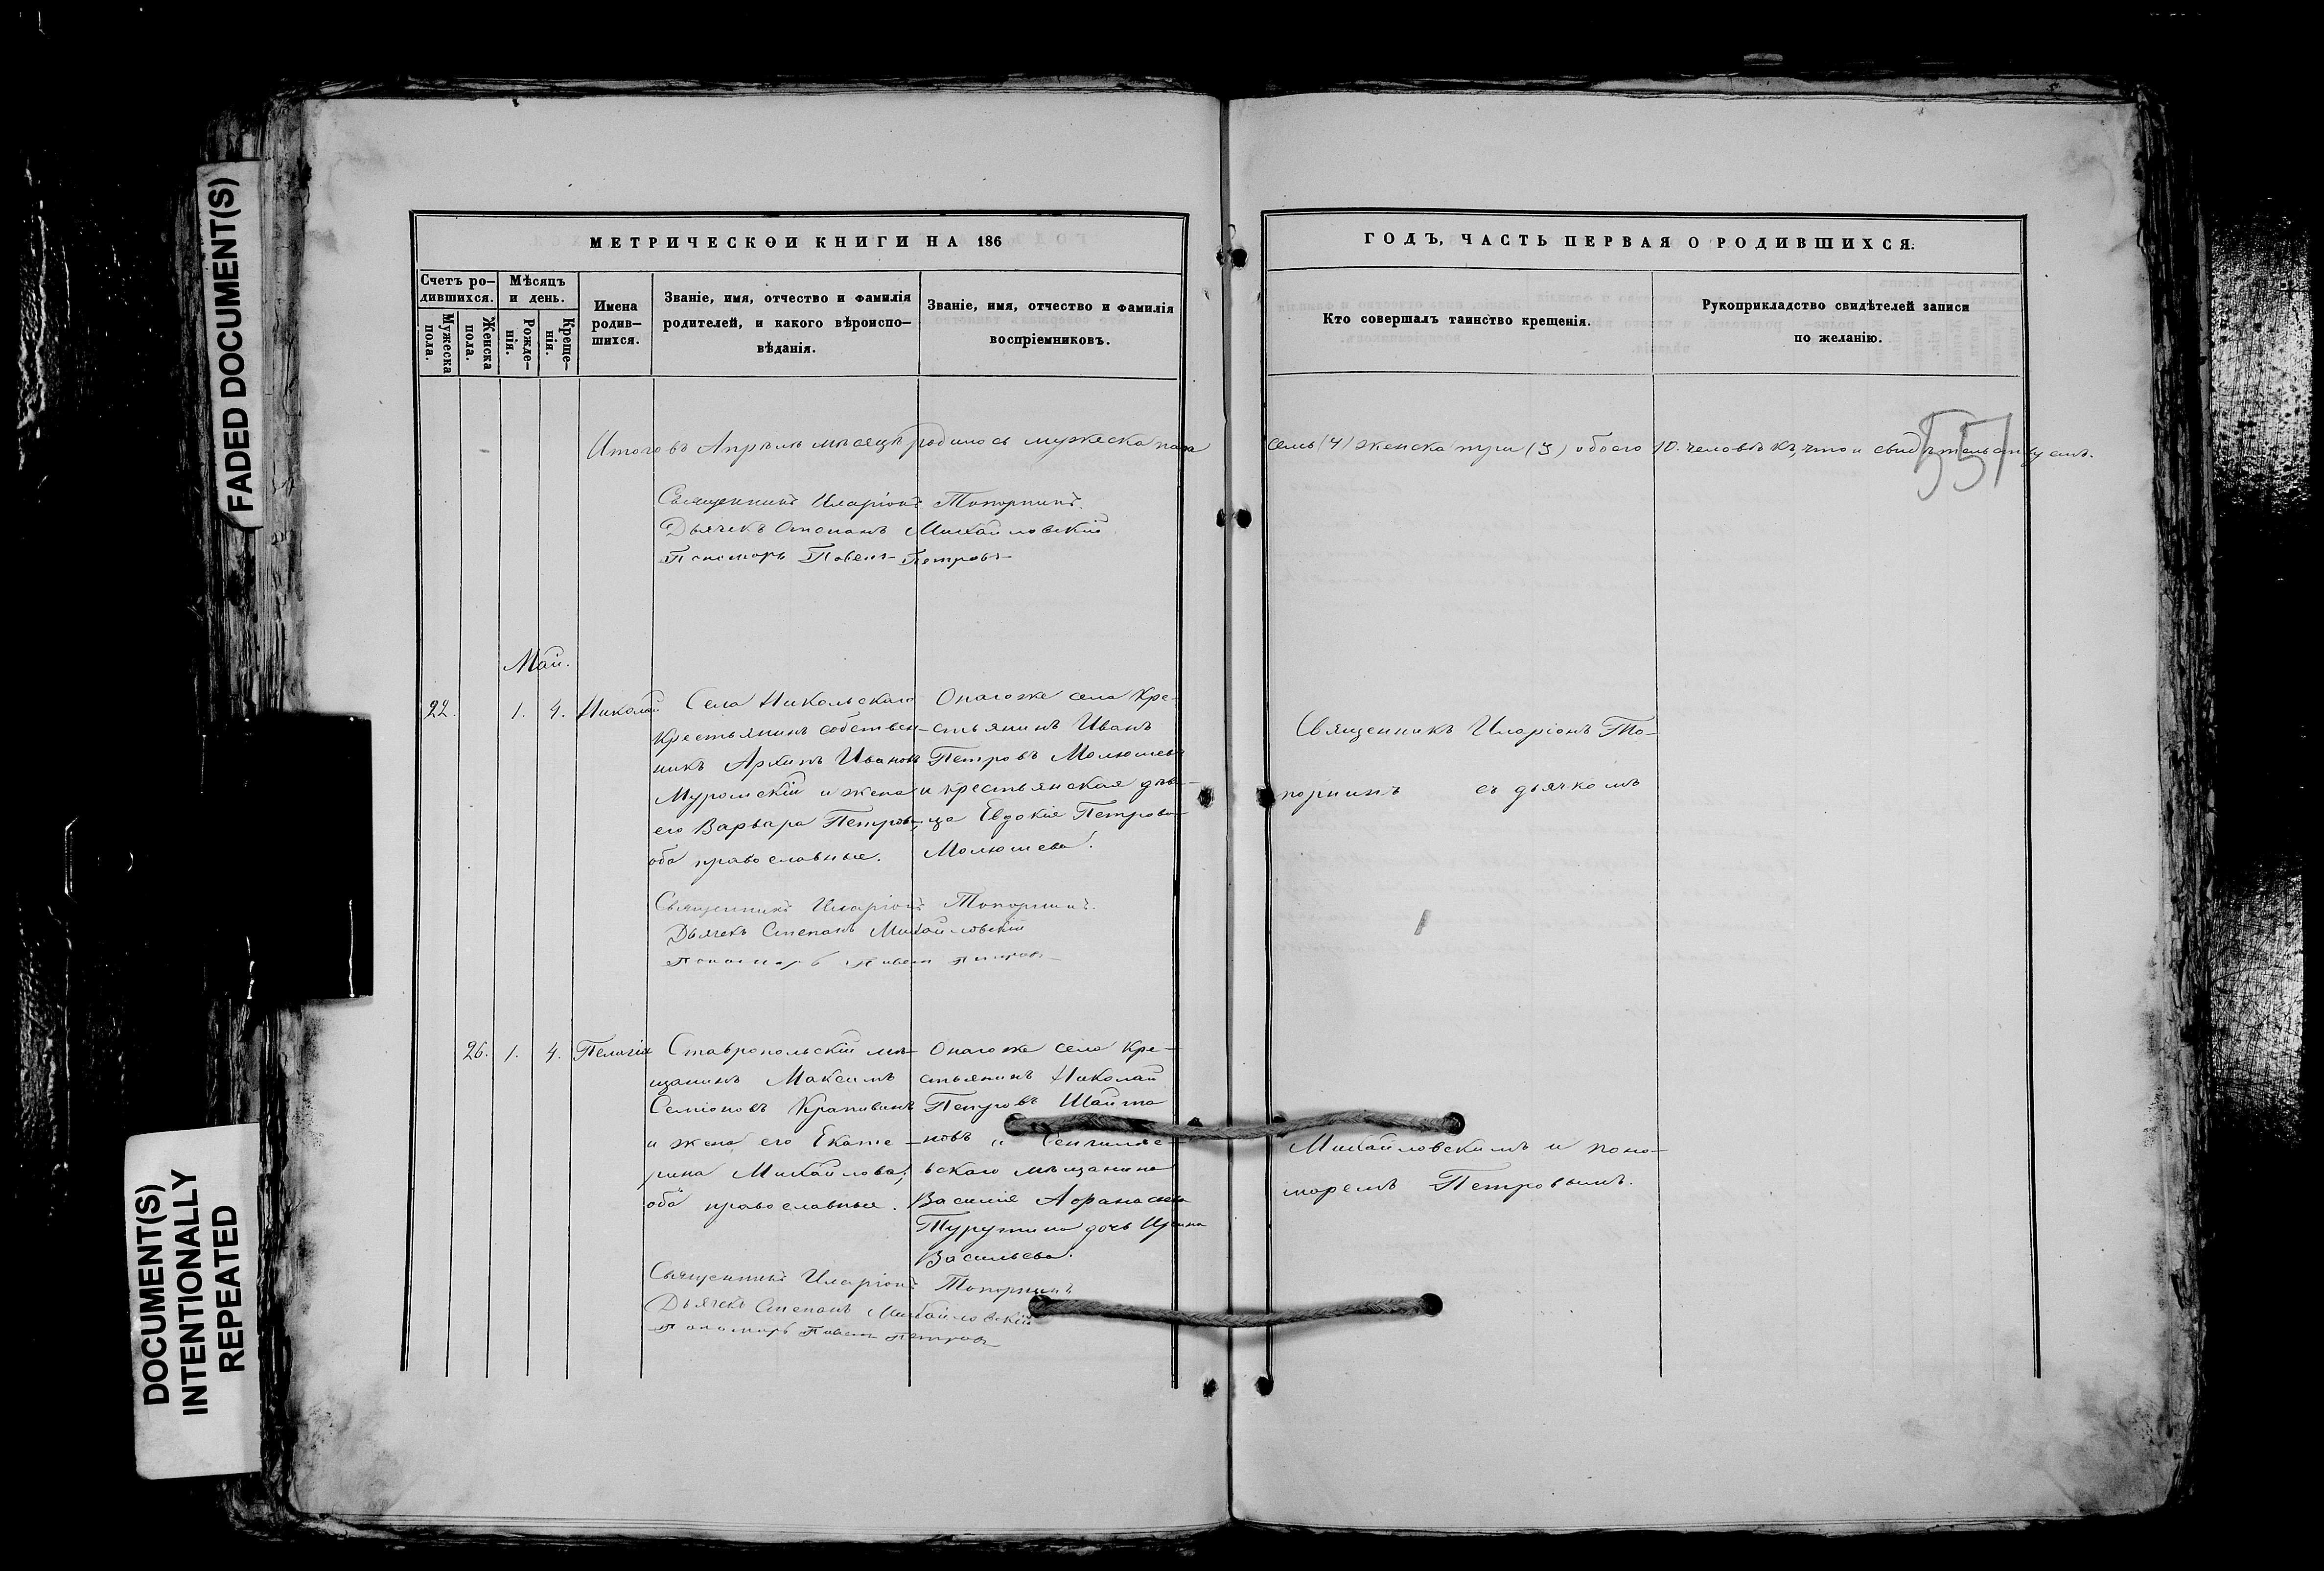 FADED DOCUMENT(S)
DOCUMENT(S)
INTENTIONALLY
REPEATED
МЕТРИЧЕСКОИ КНИГИ НА 186
Счетъ ро-
дившихся.
Мужеска
пола.
Женска
пола.
Мѣсяцъ
и день.
Рожде-
нія.
Креще-
нія.
Имена
родив-
шихся.
Званіе, имя, отчество и фамилія
родителей, и какого вѣроиспо-
вѣданія.
Званіе, имя, отчество и фамилія
воспріемниковъ.
ГОДЪ, ЧАСТЬ ПЕРВАЯ О РОДИВШИХСЯ.
Кто совершалъ таинство крещенія.
Рукоприкладство свидѣтелей записи
по желанію.
55
Итого въ Апрѣлѣ мѣсяцѣ родилось мужеска пола семь (7) женска три (3) обоего 10. человѣкъ, что и свидѣтельствуемъ.
Священникъ Иларіонъ Топорнинъ.
Дьячекъ Степанъ Михайловскій
Пономарь Павелъ Петровъ
Май.
22.
1.
4.
Николай
Села Никольскаго
Крестьянинъ собствен-
никъ Архипъ Ивановъ
Муромскій и жена
его Варвара Петрова,
оба православные.
Онаго же села Кре-
стьянинъ Иванъ
Петровъ Молюшевъ
и крестьянская дѣви-
ца Евдокія Петрова
Молюшева.
Священникъ Иларіонъ То-
порнинъ съ дьячкомъ
Священникъ Иларіонъ Топорнинъ.
Дьячекъ Степанъ Михайловскій
Пономарь Павелъ Петровъ
26.
1.
4.
Пелагія
Ставропольскій мѣ-
щанинъ Максимъ
Семіоновъ Крапивинъ
и жена его Екате-
рина Михайлова,
оба православные.
Онаго же села Кре-
стьянинъ Николай
Петровъ Шайта
новъ и Сенгилее-
вскаго мѣщанина
Василія Афанасьева
дочь Ирина
Васильева.
Михайловскимъ и поно-
маремъ Петровымъ.
Священникъ Иларіонъ Топорнинъ
Дьячекъ Степанъ Михайловскій
Пономарь Павелъ Петровъ